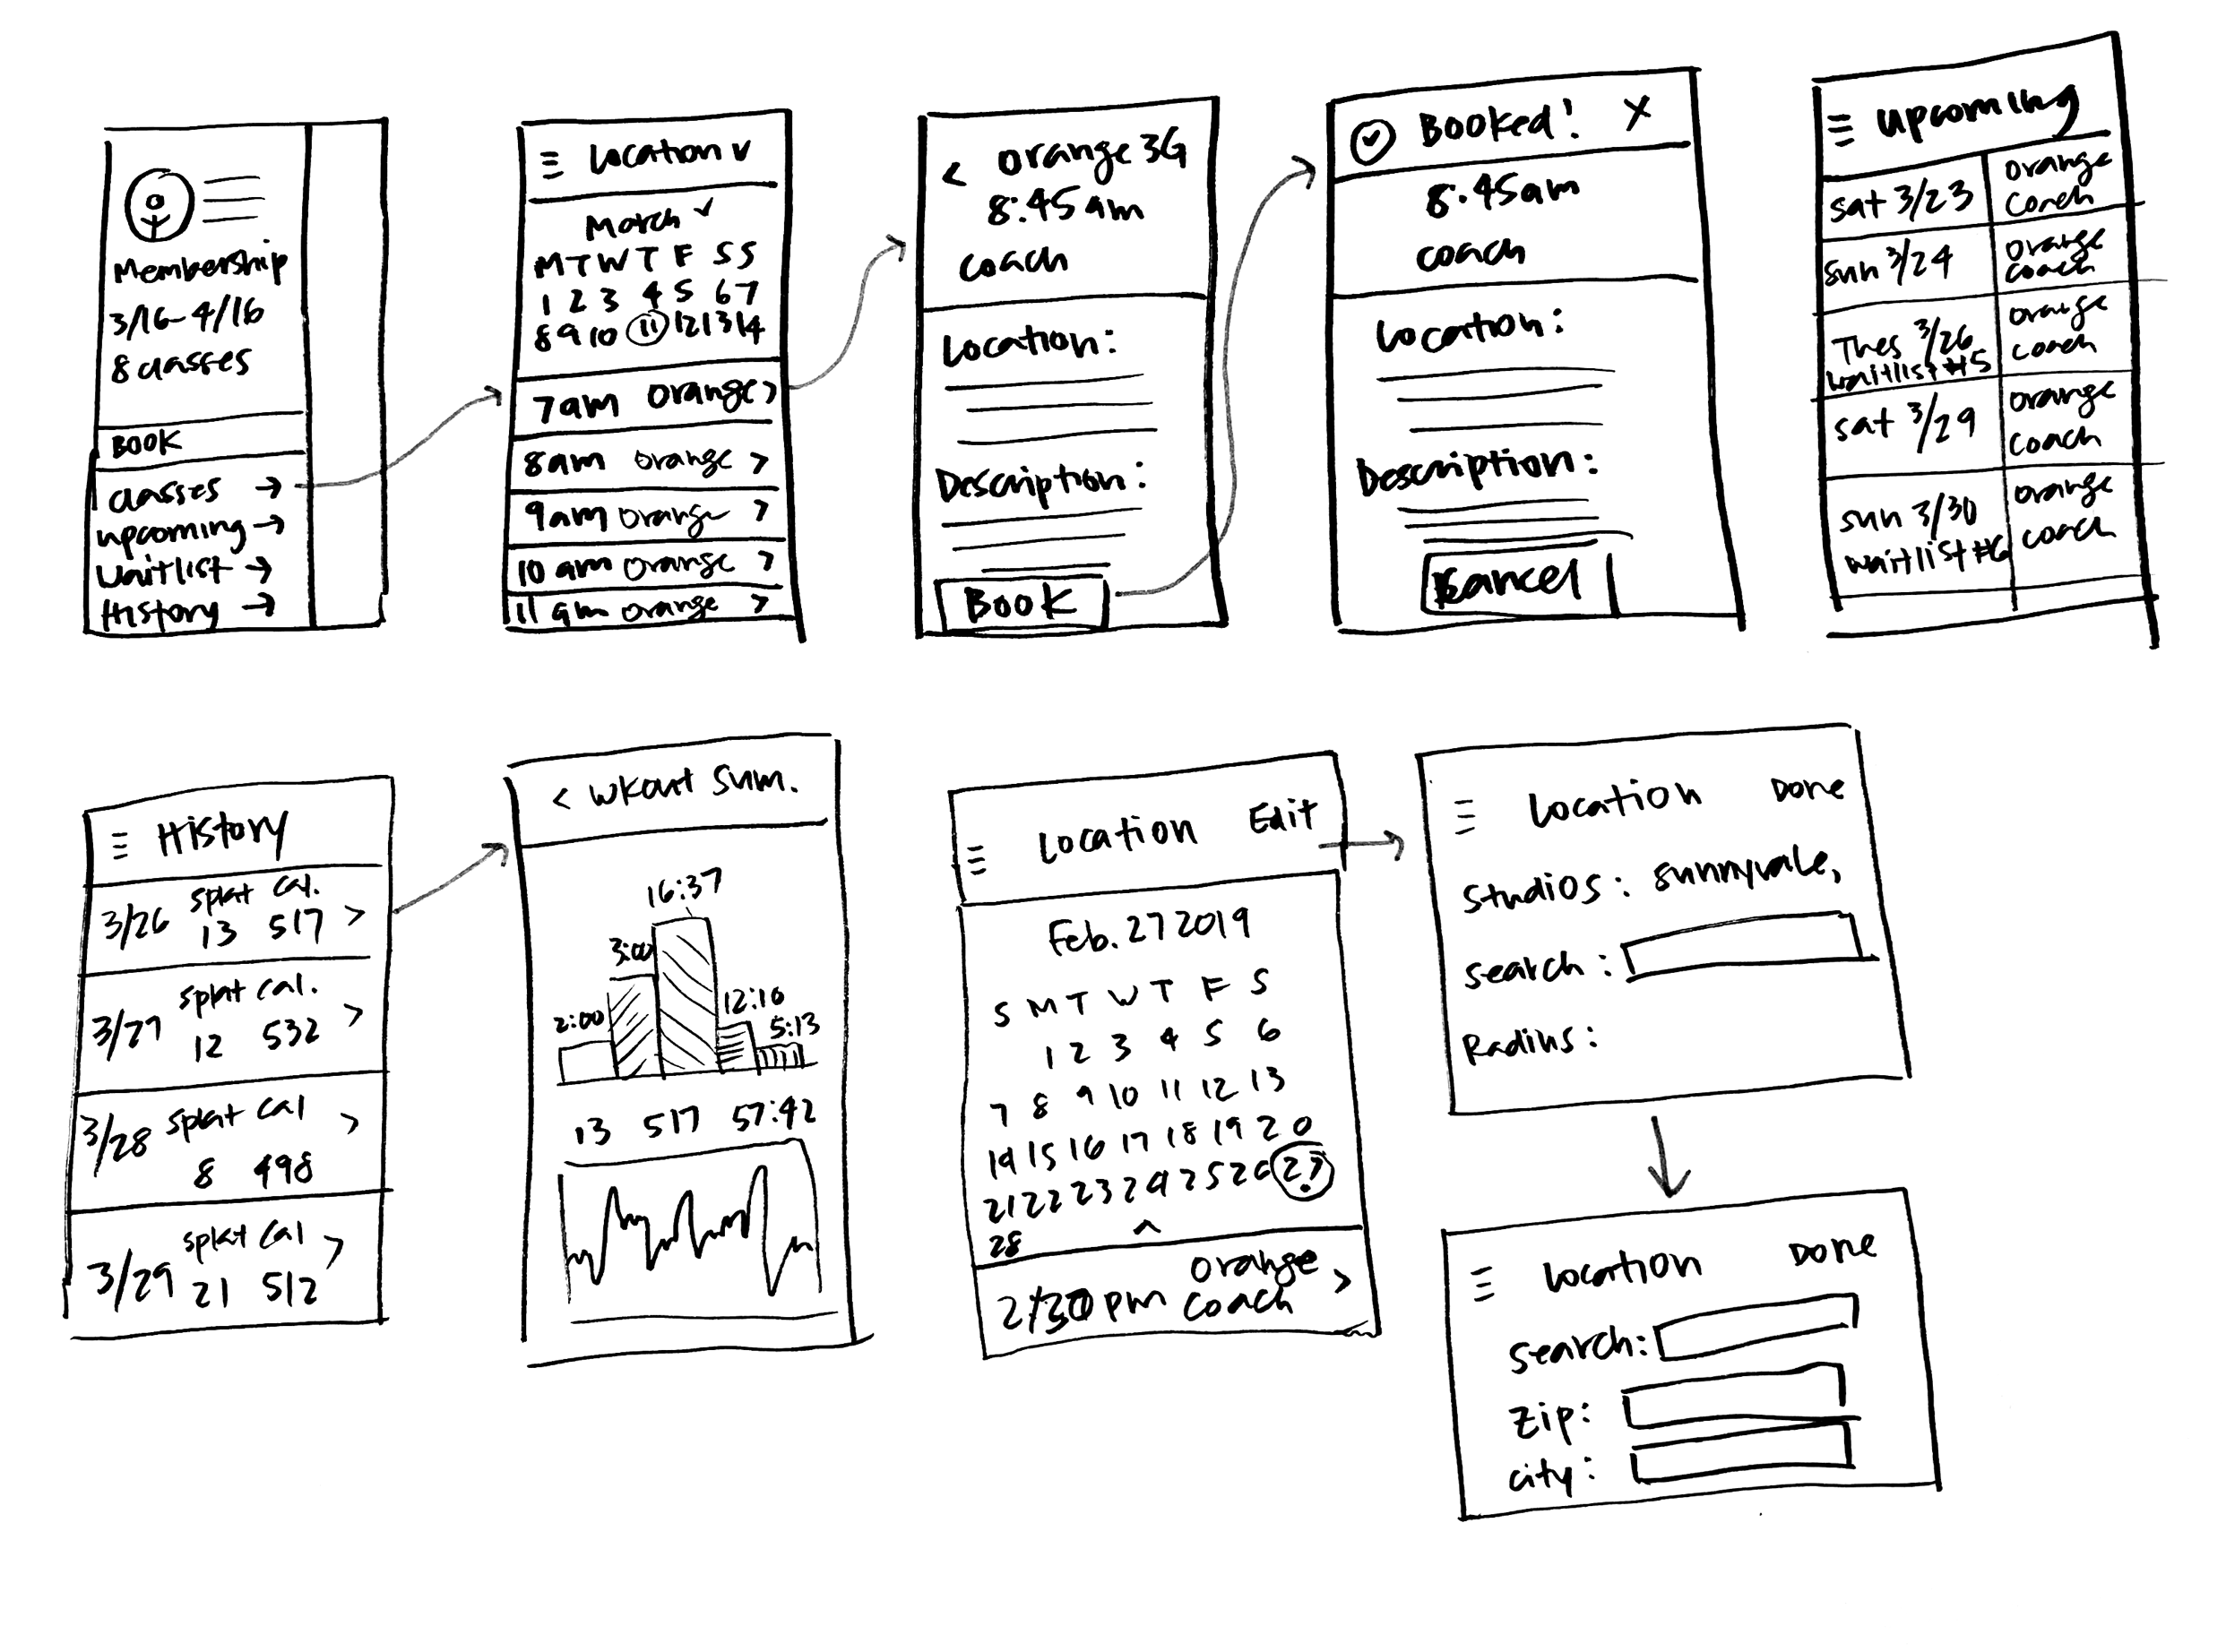 Membership
3/16-4/16
8 classes
BOOK
classes →
upcoming →
Waitlist →
History →
☰ Location ∨
March ✓
M T W T F S S
1 2 3 4 5 6 7
8 9 10 11 12 13 14
7am orange >
8am orange >
9am orange >
10 am orange >
11 am orange >
< orange 3G
8:45am
coach
Location:
Description:
BOOK
Booked! X
8:45am
coach
Location:
Description:
cancel
☰ upcoming
sat 3/23 orange
coach
sun 3/24 orange
coach
Thes 3/26 orange
waitlist #5 coach
sat 3/29 orange
coach
sun 3/30 orange
waitlist #6 coach
☰ History
splat cal.
3/26 13 517 >
splat cal.
3/27 12 532 >
3/28 splat cal >
8 498
splat cal >
3/29 21 512
< wkout sum.
16:37
3:00
12:16
2:00 5:13
13 517 57:42
☰ Location Edit
Feb. 27 2019
S M T W T F S
1 2 3 4 5 6
7 8 9 10 11 12 13
14 15 16 17 18 19 20
21 22 23 24 25 26 27
28 ^
orange >
2:30 pm coach
☰ Location Done
Studios: sunnyvale,
search:
Radius:
☰ Location Done
search:
zip:
city: